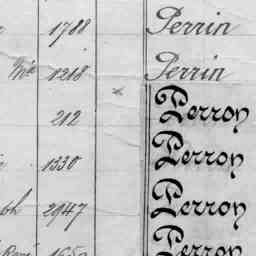 1788 Perrin
1218 Perrin
212 Perron
1330 Perron
ph 2947 Perron
Perron